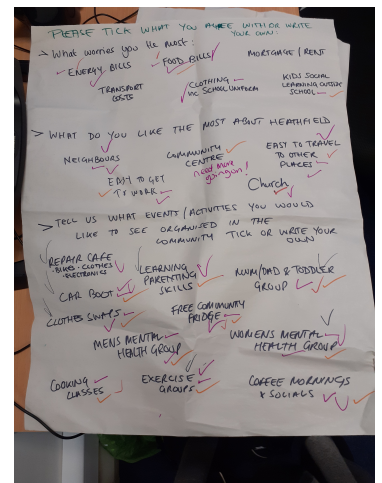 PLEASE TICK WHAT YOU AGREE WITH OR WRITE
YOUR OWN:
> What worries you the most:
ENERGY BILLS
FOOD BILLS
MORTGAGE / RENT
TRANSPORT
COSTS
CLOTHING
INC SCHOOL UNIFORM
KIDS SOCIAL
LEARNING OUTSIDE
SCHOOL
> WHAT DO YOU LIKE THE MOST ABOUT HEATHFIELD
NEIGHBOURS
COMMUNITY
CENTRE
need more
going on!
EASY TO TRAVEL
TO OTHER
PLACES
EASY TO GET
TO WORK
Church
> TELL US WHAT EVENTS / ACTIVITIES YOU WOULD
LIKE TO SEE ORGANISED IN THE
COMMUNITY TICK OR WRITE YOUR
OWN
REPAIR CAFE
- BIKES - CLOTHES
- ELECTRONICS
LEARNING
PARENTING
SKILLS
MUM/DAD & TODDLER
GROUP
CAR BOOT
CLOTHES SWAPS
FREE COMMUNITY
FRIDGE
MENS MENTAL
HEALTH GROUP
WOMENS MENTAL
HEALTH GROUP
COOKING
CLASSES
EXERCISE
GROUPS
COFFEE MORNINGS
& SOCIALS